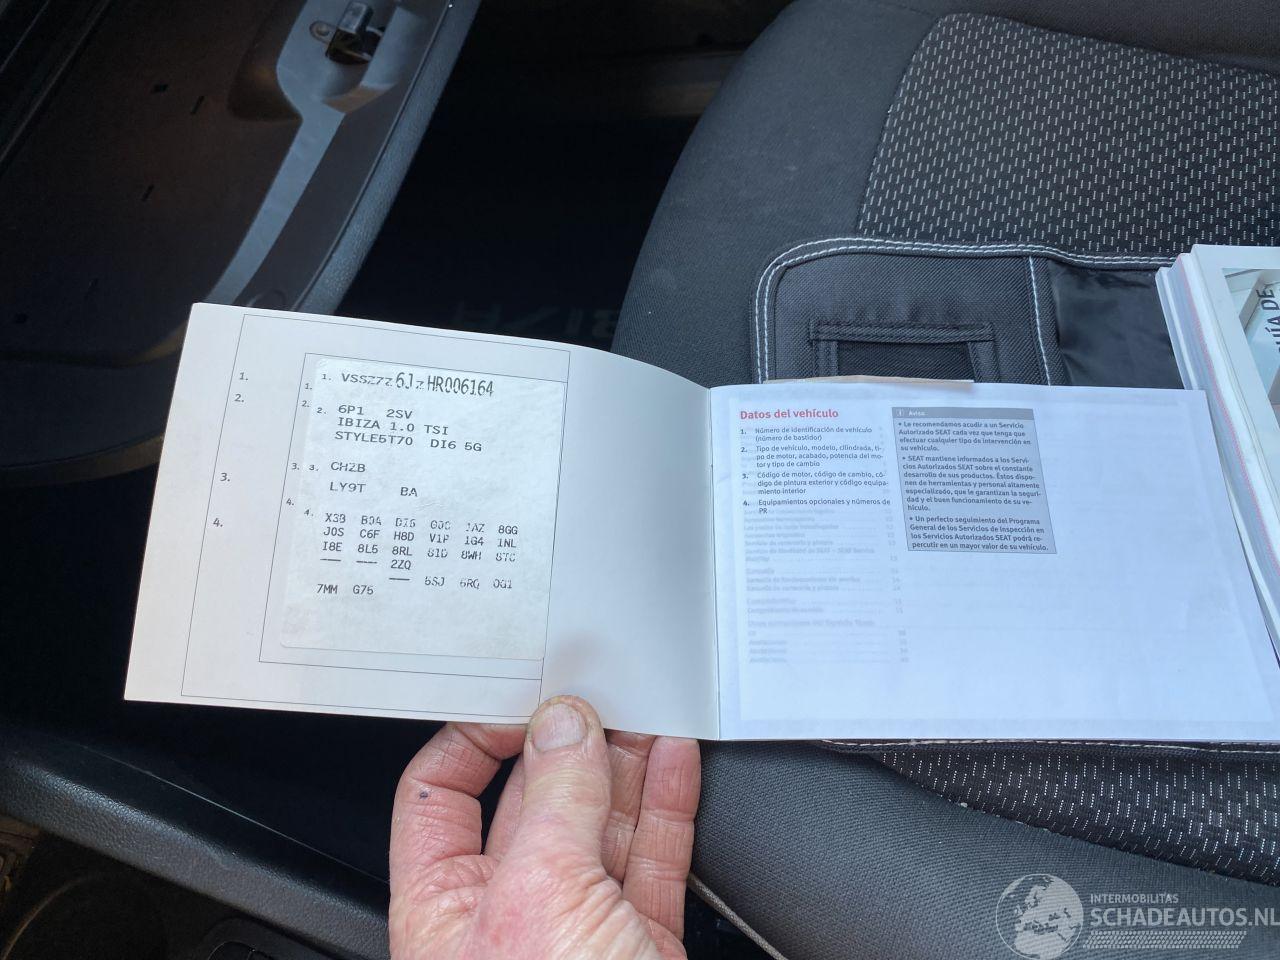 1.
2.
3.
4.
1.
2.
3.
4.
1. VSSZZZ6JZHR006164
2. 6P1 2SV
IBIZA 1.0 TSI
STYLE5T70 DI6 5G
3. CHZB
LY9T BA
4. X3B B0A 8GG
J0S C6F H8D V1P 1G4 1NL
I8E 8L5 8RL 8WH
2ZQ
7MM G75
Datos del vehículo
1. Número de identificación de vehículo
(número de bastidor)
2. Tipo de vehículo, modelo, cilindrada, ti-
po de motor, acabado, potencia del mo-
tor y tipo de cambio
3. Código de motor, código de cambio, có-
digo de pintura exterior y código equipa-
miento interior
4. Equipamientos opcionales y números de
PR
i Aviso
• Le recomendamos acudir a un Servicio
Autorizado SEAT cada vez que tenga que
efectuar cualquier tipo de intervención en
su vehículo.
• SEAT mantiene informados a los Servi-
cios Autorizados SEAT sobre el constante
desarrollo de sus productos. Estos dispo-
nen de herramientas y personal altamente
especializado, que le garantizan la seguri-
dad y el buen funcionamiento de su ve-
hículo.
• Un perfecto seguimiento del Programa
General de los Servicios de Inspección en
los Servicios Autorizados SEAT podrá re-
percutir en un mayor valor de su vehículo.
GUÍA DE
INTERMOBILITAS
SCHADEAUTOS.NL